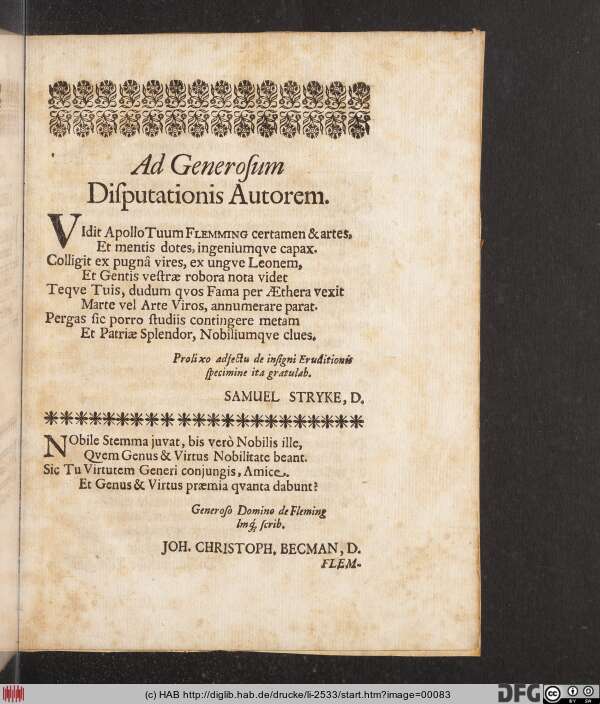 Ad Generoſum
Diſputationis Autorem.
VIdit Apollo Tuum FLEMMING certamen & artes,
Et mentis dotes, ingeniumqve capax.
Colligit ex pugnâ vires, ex ungve Leonem,
Et Gentis veſtræ robora nota videt
Teqve Tuis, dudum qvos Fama per Æthera vexit
Marte vel Arte Viros, annumerare parat.
Pergas ſic porro ſtudiis contingere metam
Et Patriæ Splendor, Nobiliumqve clues.
Prolixo adfectu de inſigni Eruditionis
ſpecimine ita gratulab.
SAMUEL STRYKE, D.
NObile Stemma juvat, bis verò Nobilis ille,
Qvem Genus & Virtus Nobilitate beant.
Sic Tu Virtutem Generi conjungis, Amice,
Et Genus & Virtus præmia qvanta dabunt?
Generoſo Domino de Fleming
ſcrib.
JOH. CHRISTOPH. BECMAN, D.
FLEM-
(c) HAB http://diglib.hab.de/drucke/li-2533/start.htm?image=00083
DFG
cc BY SA